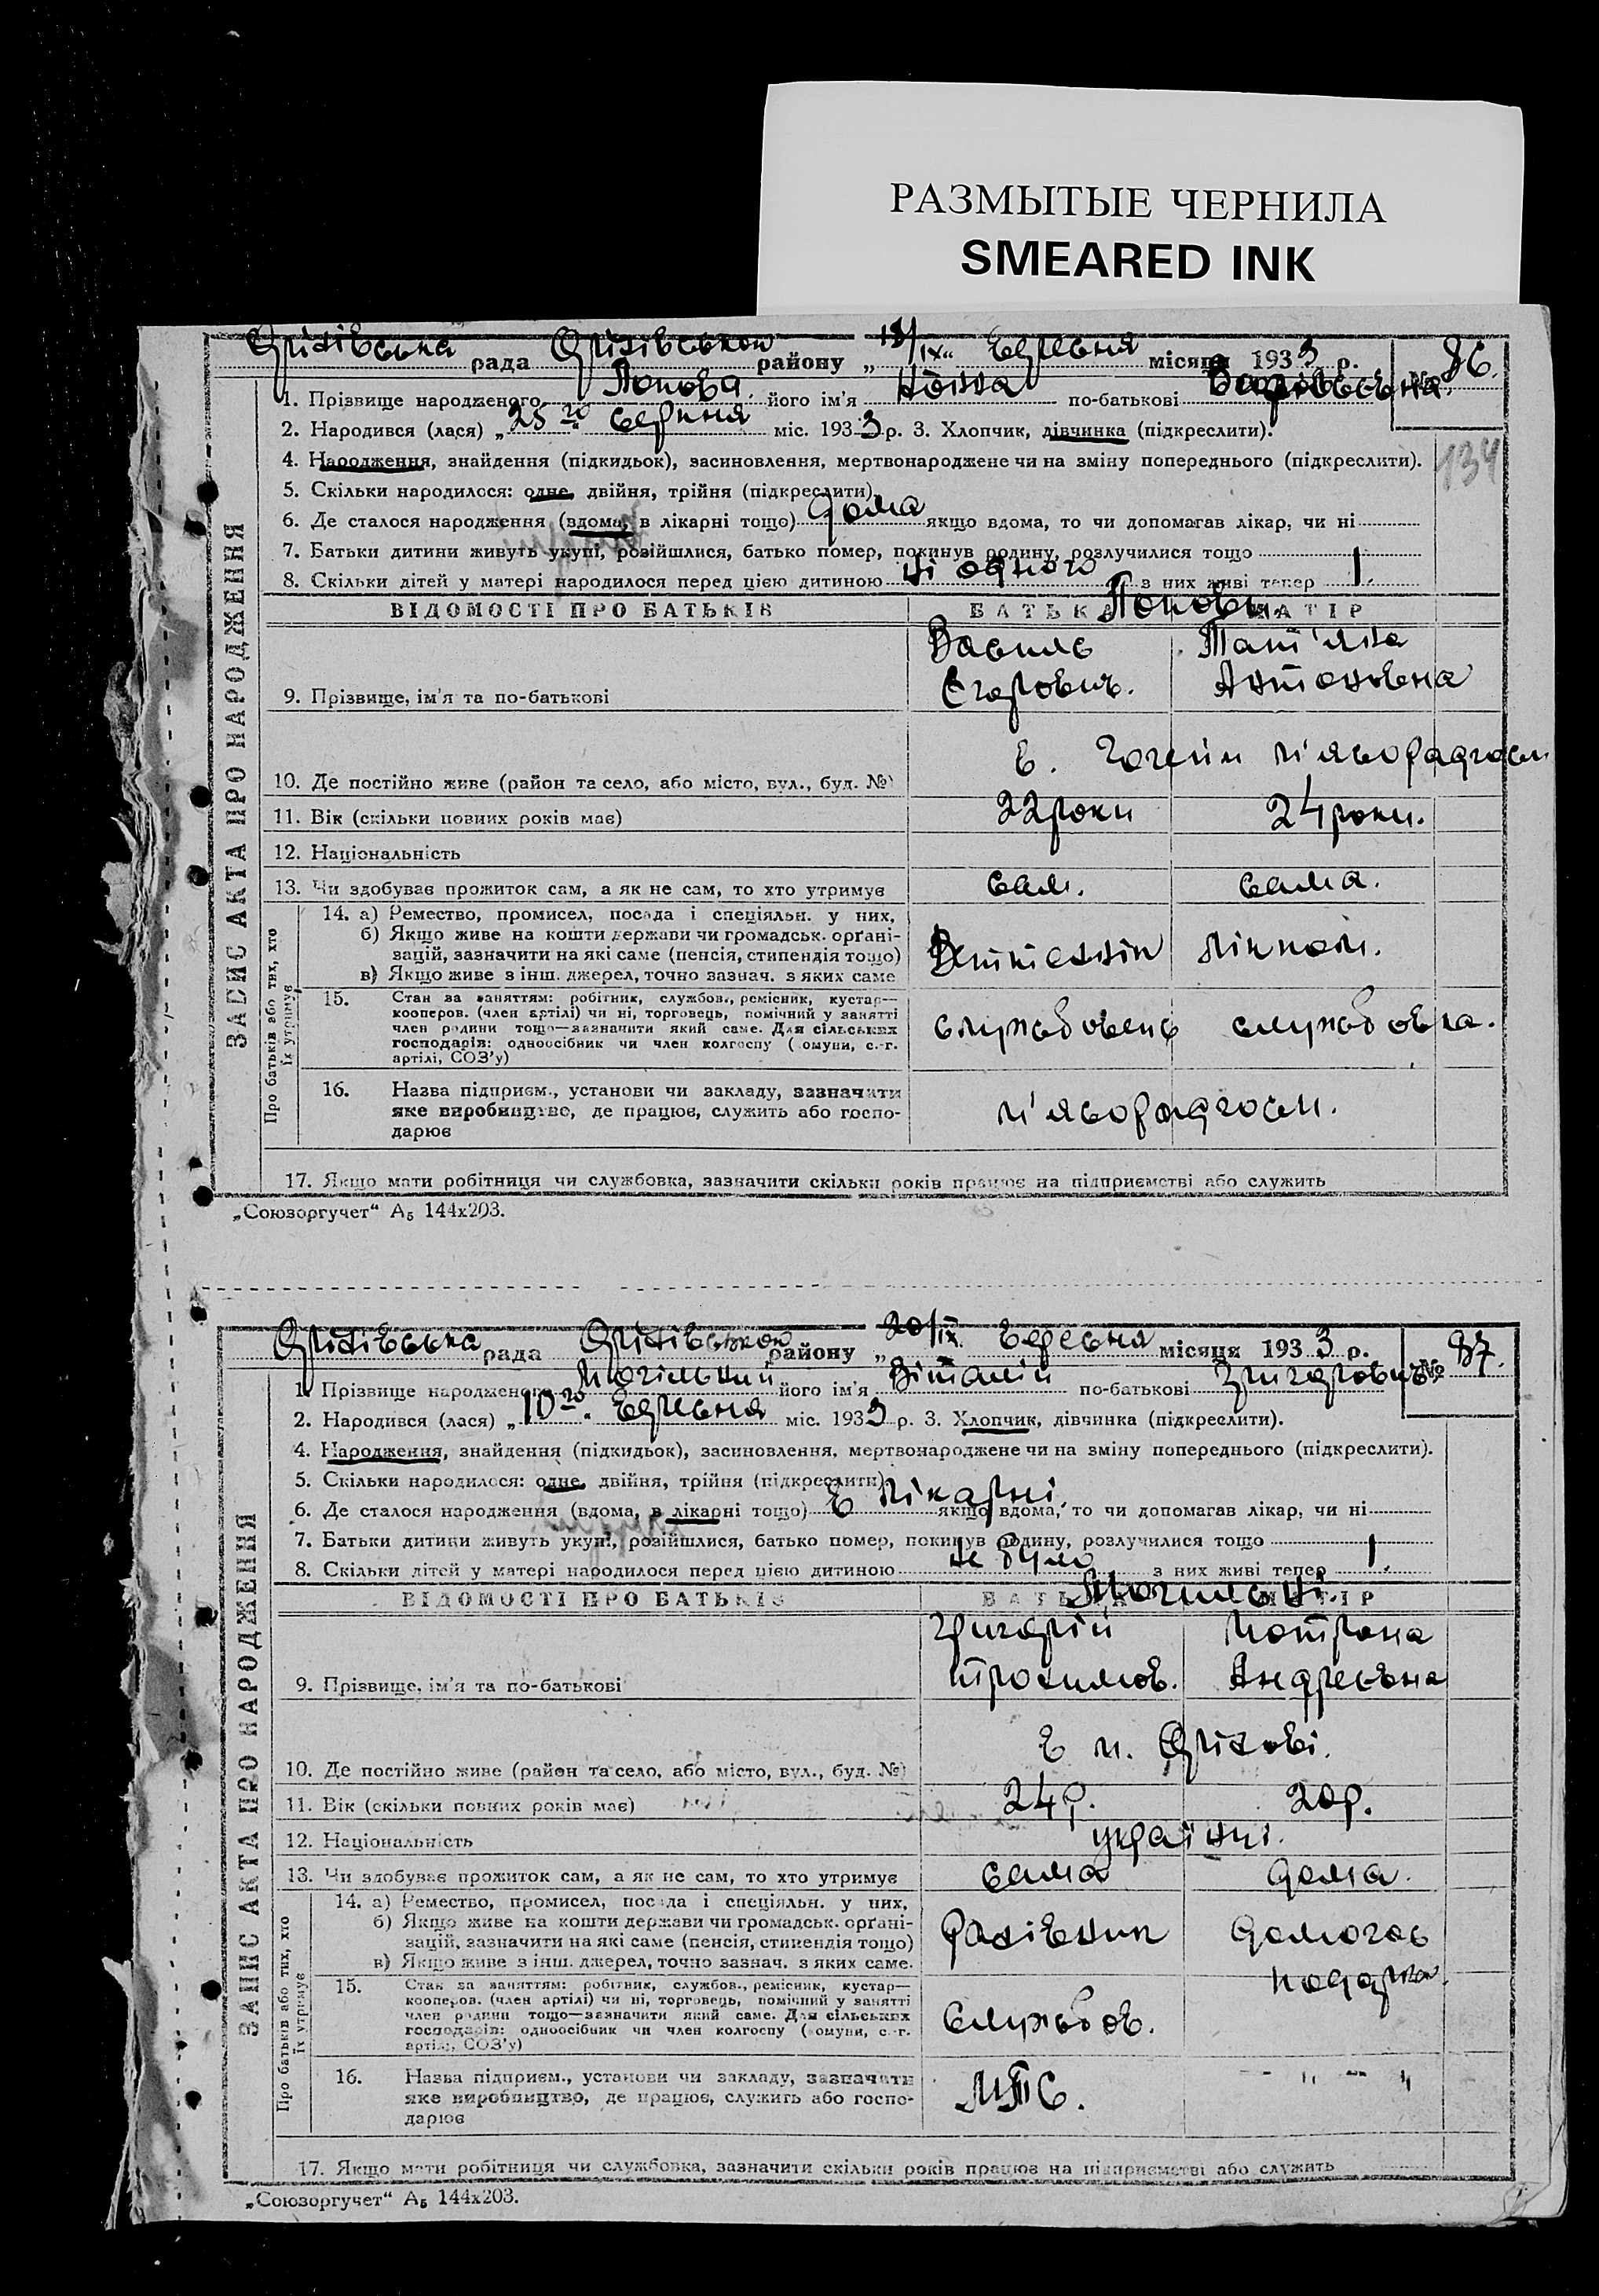 РАЗМЫТЫЕ ЧЕРНИЛА
SMEARED INK
Оріхівська рада Оріхівського району „18/IX" вересня місяця 1933 р. № 86.
1. Прізвище народженого Попова його ім'я по-батькові Васильєвна.
2. Народився (лася) „25го серпня міс. 1933 р. 3. Хлопчик, дівчинка (підкреслити).
134
4. Народження, знайдення (підкидьок), засиновлення, мертвонароджене чи на зміну попереднього (підкреслити).
5. Скільки народилося: одне, двійня, трійня (підкреслити)
6. Де сталося народження (вдома, в лікарні тощо) дома якщо вдома, то чи допомагав лікар, чи ні
7. Батьки дитини живуть укупі, розійшлися, батько помер, покинув родину, розлучилися тощо
8. Скільки дітей у матері народилося перед цією дитиною ні одного з них живі тепер 1.
ВІДОМОСТІ ПРО БАТЬКІВ БАТЬКА МАТІР
Попови.
Василь Тат'яна
9. Прізвище, ім'я та по-батькові Єгорович. Антоновна
10. Де постійно живе (район та село, або місто, вул., буд. №) м'ясорадгосп
11. Вік (скільки повних років має) 22 роки 24 роки.
12. Національність
13. Чи здобуває прожиток сам, а як не сам, то хто утримує сам. сама.
14. а) Ремество, промисел, посада і спеціяльн. у них,
б) Якщо живе на кошти держави чи громадськ. орґані-
зацій, зазначити на які саме (пенсія, стипендія тощо)
в) Якщо живе з інш. джерел, точно зазнач. з яких саме
15. Стан за заняттям: робітник, службов., ремісник, кустар—
кооперов. (член артілі) чи ні, торговець, помічний у занятті
член родини тощо—зазначити який саме. Для сільських
господарів: одноосібник чи член колгоспу (комуни, с.-г.
артілі, СОЗ'у)
службовець службовка.
16. Назва підприєм., установи чи закладу, зазначити
яке виробництво, де працює, служить або госпо-
дарює
м'ясорадгосп.
17. Якщо мати робітниця чи службовка, зазначити скільки років працює на підприємстві або служить
ЗАПИС АКТА ПРО НАРОДЖЕННЯ
Про батьків або тих, хто
їх утримує
„Союзоргучет" А5 144х203.
Оріхівська рада Оріхівського району „20/IX" вересня місяця 1933 р. № 87.
1. Прізвище народженого Могільний його ім'я Віталій по-батькові Григорович
2. Народився (лася) „10го. вересня міс. 1933 р. 3. Хлопчик, дівчинка (підкреслити).
4. Народження, знайдення (підкидьок), засиновлення, мертвонароджене чи на зміну попереднього (підкреслити).
5. Скільки народилося: одне, двійня, трійня (підкреслити)
6. Де сталося народження (вдома, в лікарні тощо) в лікарні. якщо вдома, то чи допомагав лікар, чи ні
7. Батьки дитини живуть укупі, розійшлися, батько помер, покинув родину, розлучилися тощо
8. Скільки дітей у матері народилося перед цією дитиною не було з них живі тепер 1.
ВІДОМОСТІ ПРО БАТЬКІВ БАТЬКА МАТІР
Григорій Мотрона
9. Прізвище, ім'я та по-батькові Трохимов. Андреєвна
10. Де постійно живе (район та село, або місто, вул., буд. №) в м. Оріхові.
11. Вік (скільки повних років має) 24 р. 20 р.
12. Національність українці.
13. Чи здобуває прожиток сам, а як не сам, то хто утримує сама дома.
14. а) Ремество, промисел, посада і спеціяльн. у них,
б) Якщо живе на кошти держави чи громадськ. орґані-
зацій, зазначити на які саме (пенсія, стипендія тощо)
в) Якщо живе з інш. джерел, точно зазнач. з яких саме.
рахівник домогос
подарка.
15. Стан за заняттям: робітник, службов., ремісник, кустар—
кооперов. (член артілі) чи ні, торговець, помічний у занятті
член родини тощо—зазначити який саме. Для сільських
господарів: одноосібник чи член колгоспу (комуни, с.-г.
артілі, СОЗ'у)
службов.
16. Назва підприєм., установи чи закладу, зазначити
яке виробництво, де працює, служить або госпо-
дарює
МТС. - " - "
17. Якщо мати робітниця чи службовка, зазначити скільки років працює на підприємстві або служить
ЗАПИС АКТА ПРО НАРОДЖЕННЯ
Про батьків або тих, хто
їх утримує
„Союзоргучет" А5 144х203.